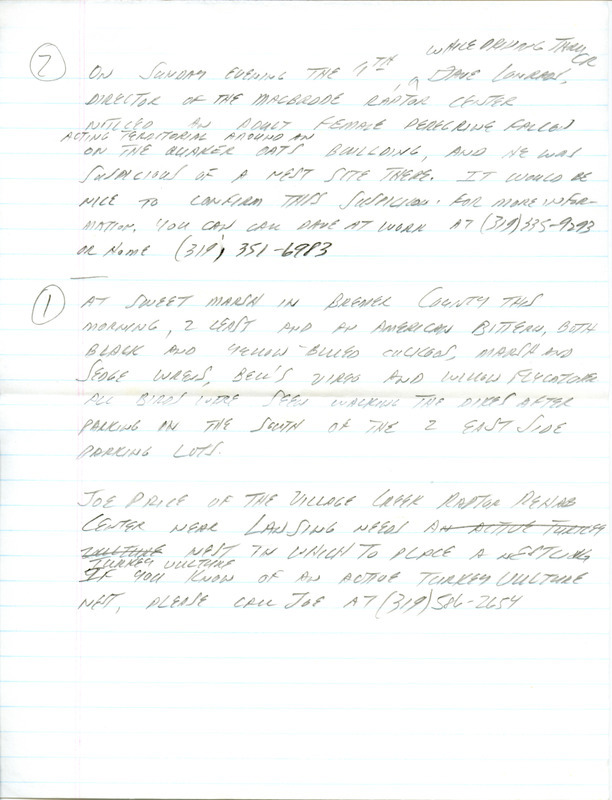 WHILE DRIVING THRU
CR
2 ON SUNDAY EVENING THE 9TH, DAVE CONRADS,
DIRECTOR OF THE MACBRIDE RAPTOR CENTER
NOTICED AN ADULT FEMALE PEREGRINE FALCON
ACTING TERRITORIAL AROUND AN
ON THE QUAKER OATS BUILDING, AND HE WAS
SUSPICIOUS OF A NEST SITE THERE. IT WOULD BE
NICE TO CONFIRM THIS SUSPICION. FOR MORE INFOR-
MATION, YOU CAN CALL DAVE AT WORK AT (319) 335-9293
OR HOME (319) 351-6983
1 AT SWEET MARSH IN BREMER COUNTY THIS
MORNING, 2 LEAST AND AN AMERICAN BITTERN, BOTH
BLACK AND YELLOW-BILLED CUCKOOS, MARSH AND
SEDGE WRENS, BELL'S VIREO AND WILLOW FLYCATCHER
ALL BIRDS WERE SEEN WALKING THE DIKES AFTER
PARKING IN THE SOUTH OF THE 2 EAST SIDE
PARKING LOTS.
JOE PRICE OF THE VILLAGE CREEK RAPTOR REHAB
CENTER NEAR LANSING NEEDS AN ACTIVE TURKEY
VULTURE NEST IN WHICH TO PLACE A NESTLING
TURKEY VULTURE
IF YOU KNOW OF AN ACTIVE TURKEY VULTURE
NEST, PLEASE CALL JOE AT (319) 586-2654